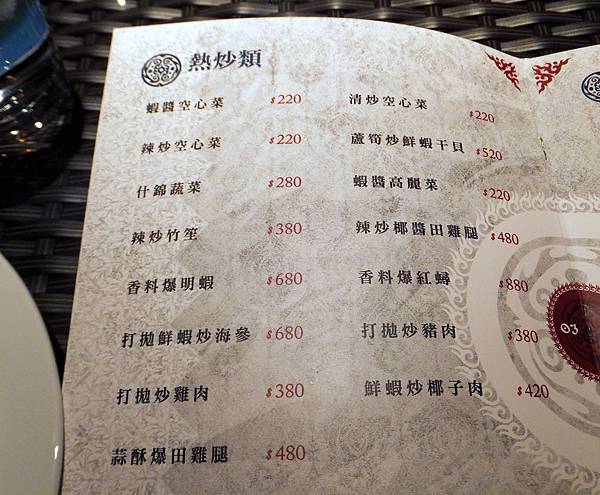 熱炒類
蝦醬空心菜 $220
辣炒空心菜 $220
什錦蔬菜 $280
辣炒竹笙 $380
香料爆明蝦 $680
打拋鮮蝦炒海參 $680
打拋炒雞肉 $380
蒜酥爆田雞腿 $480
清炒空心菜 $220
蘆筍炒鮮蝦干貝 $520
蝦醬高麗菜 $220
辣炒椰醬田雞腿 $480
香料爆紅蟳 $880
打拋炒豬肉 $380
鮮蝦炒椰子肉 $420
03